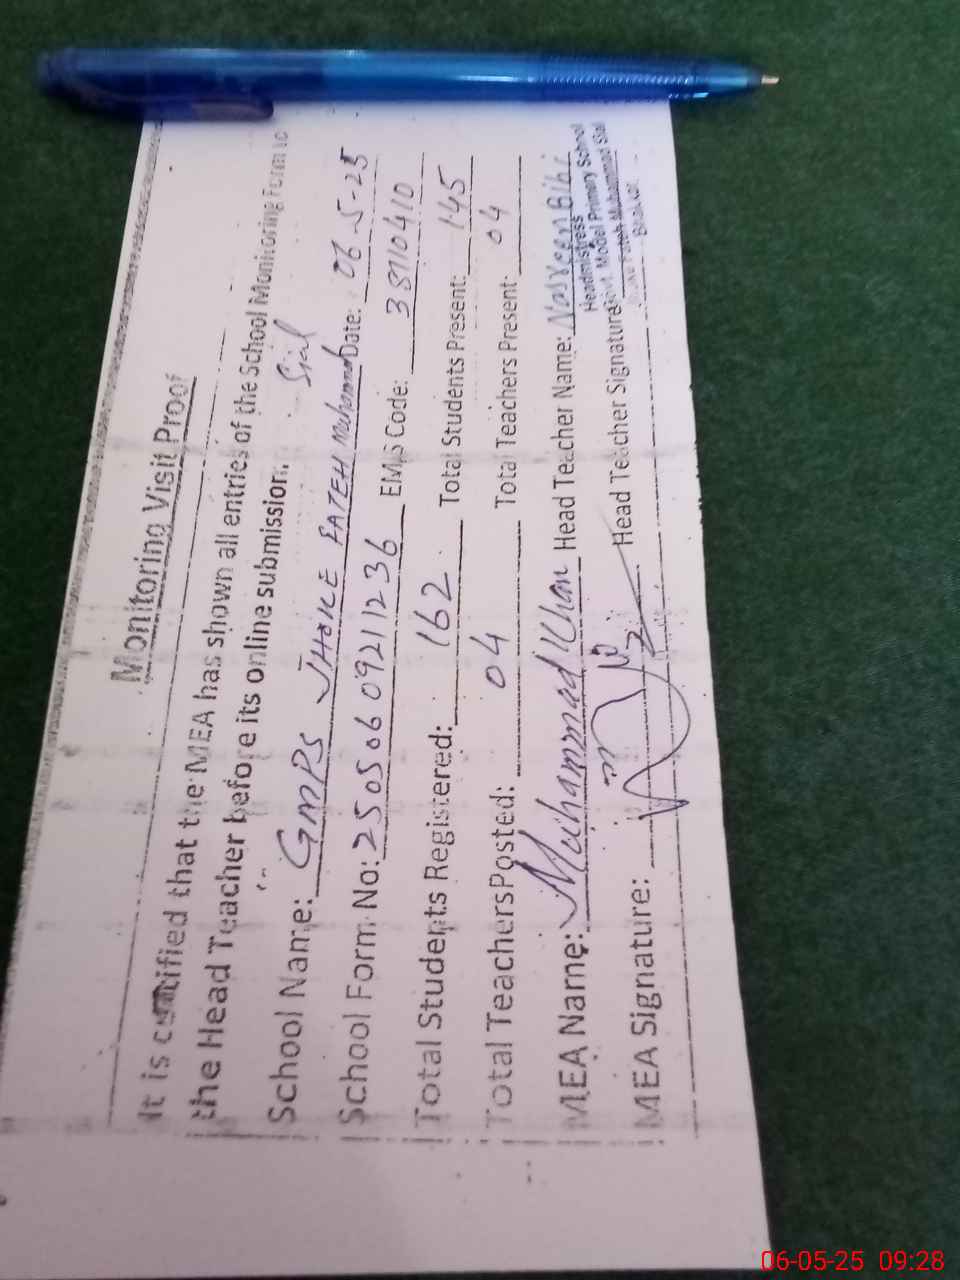 Monitoring Visit Proof
It is certified that the MEA has shown all entries of the School Monitoring Form to
the Head Teacher before its online submission.
School Name: GMPS JHOKE FATEH Muhammad Sial Date: 06-5-25
School Form No: 25050609211236 EMIS Code: 38110410
Total Students Registered: 162 Total Students Present: 145
Total Teachers Posted: 04 Total Teachers Present: 04
MEA Name: Muhammad Khan Head Teacher Name: Nasreen Bibi
MEA Signature: Head Teacher Signature:
Headmistress
Govt. Model Primary School
Fateh Muhammad Sial
Bhakkar
06-05-25 09:28